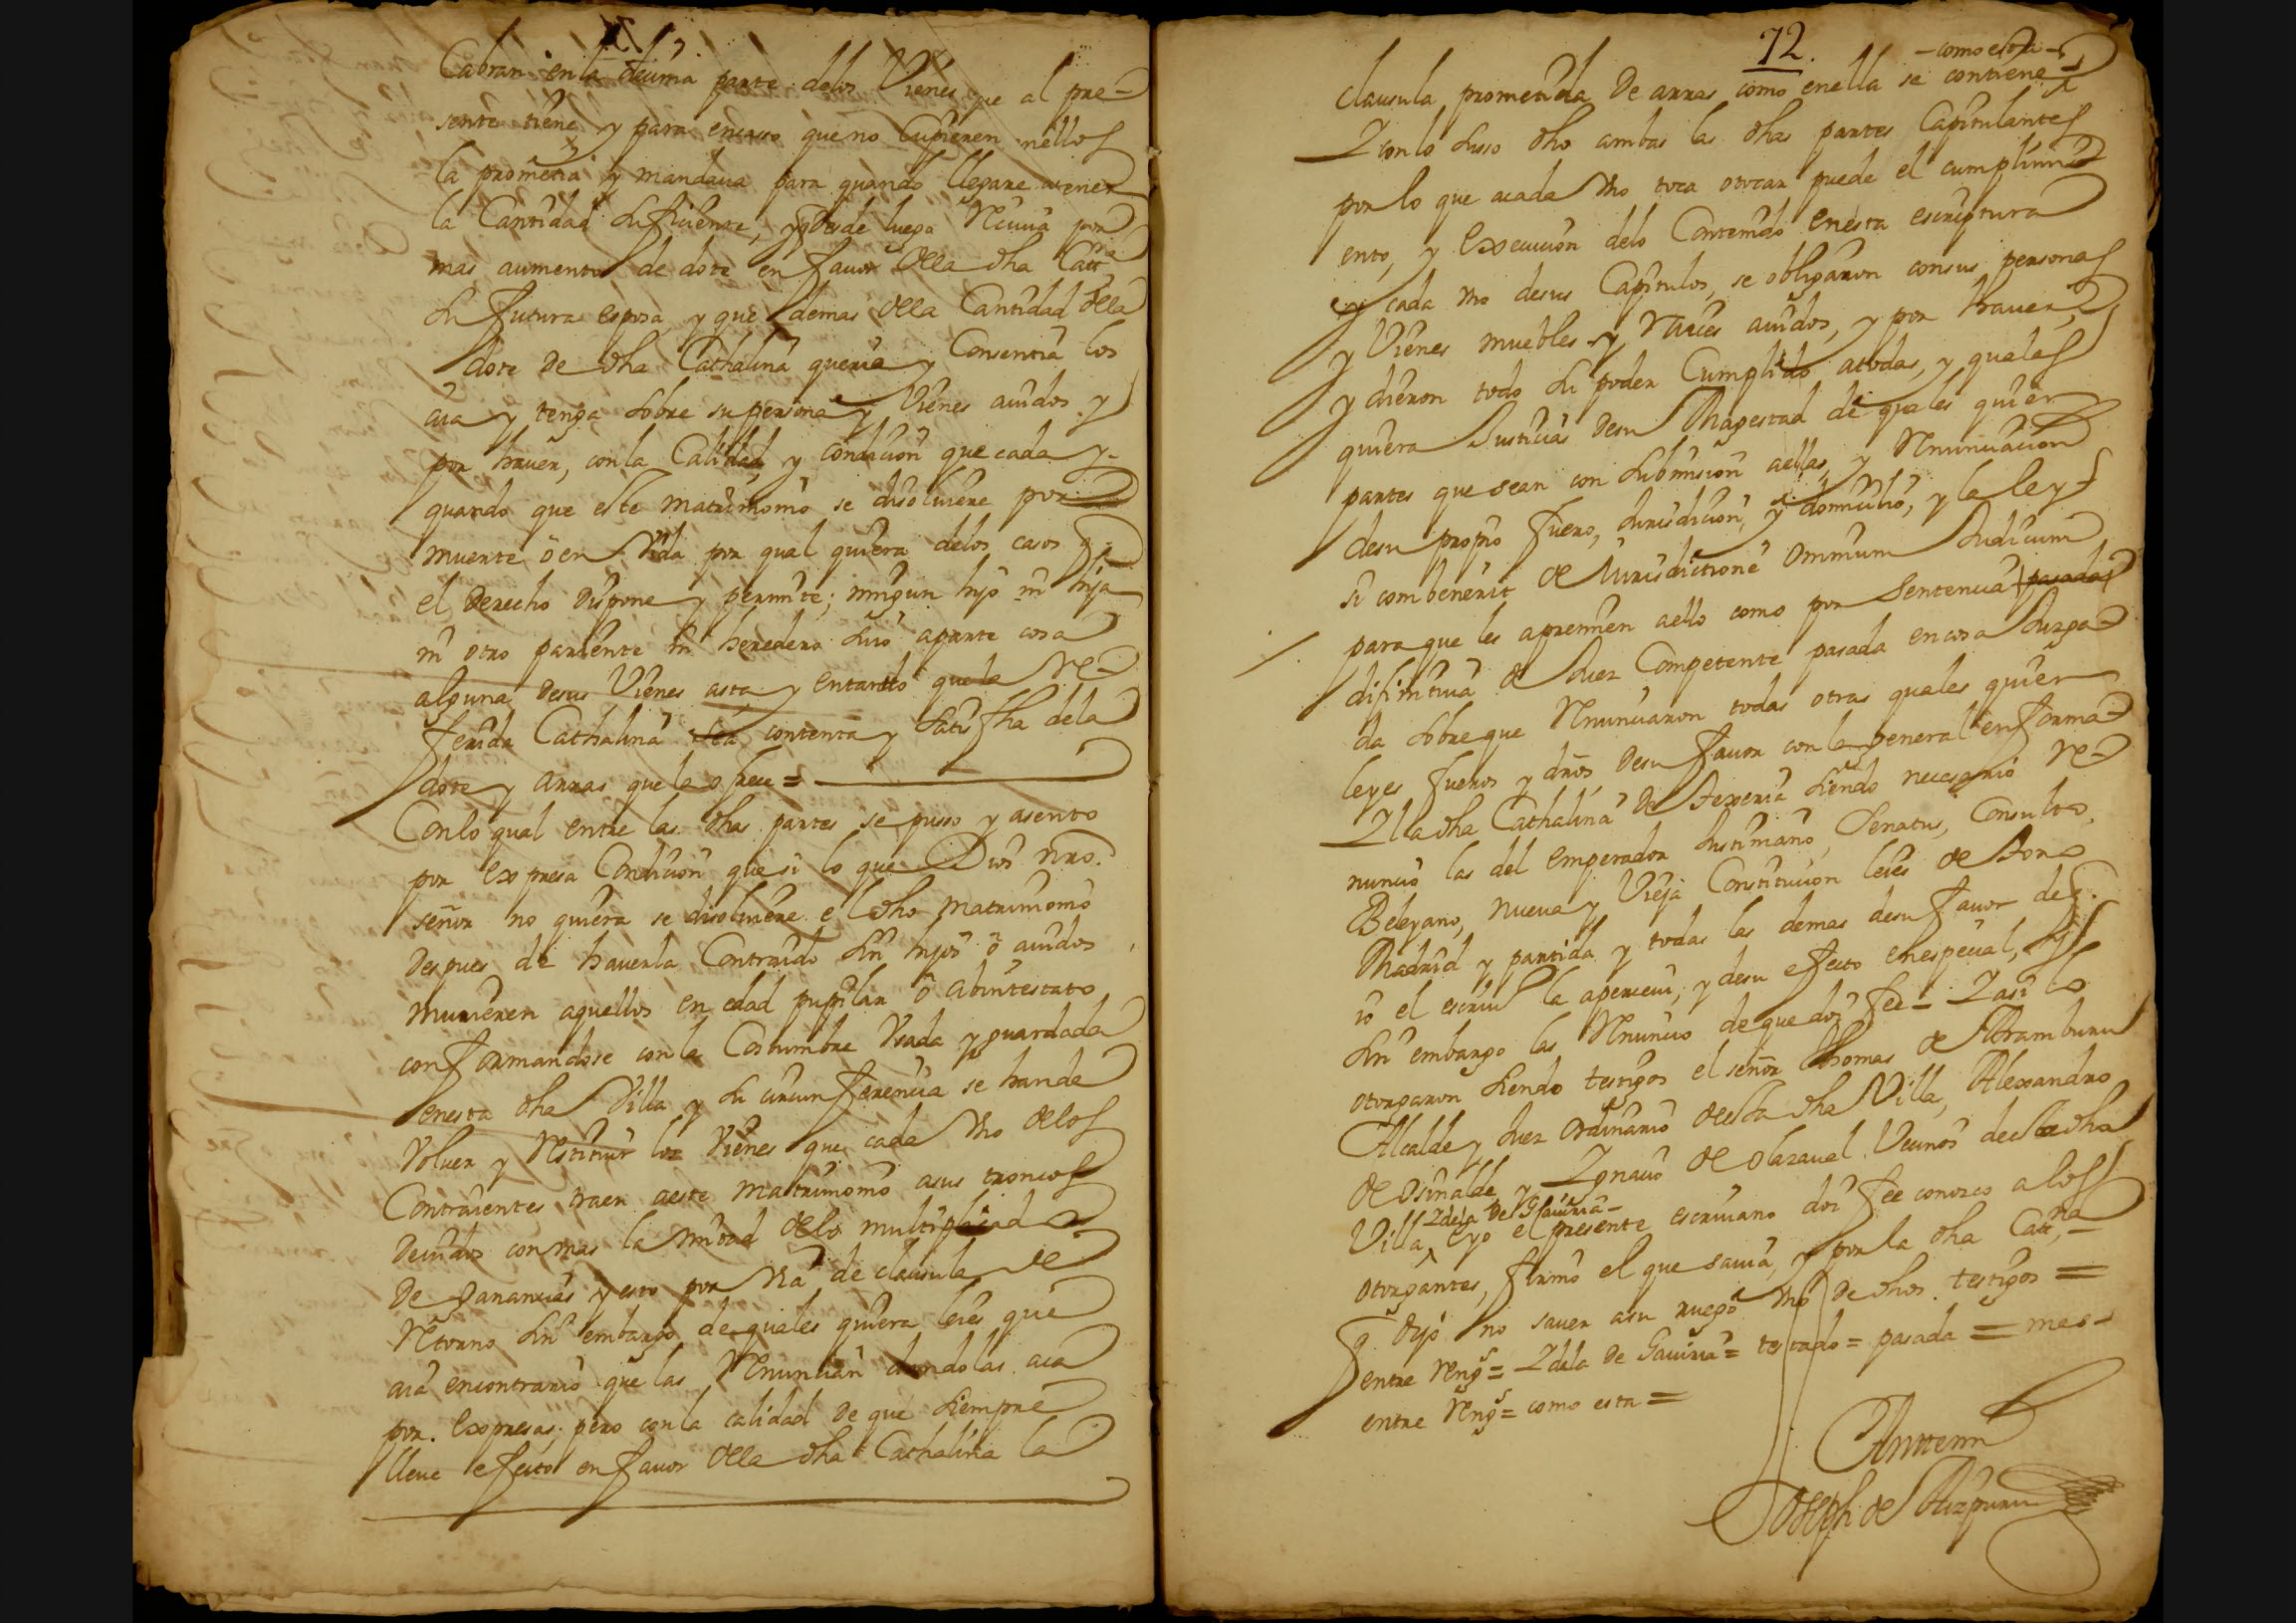 Cabran en la decima parte delos Vienes que al pre-
sente tiene, y para encasso que no Cupieren nellos
la prometia y mandaua para quando llegare atener
la Cantidad Sufiçiente, y desde luego por
mas aumento de dote en fauor della dha Catt.na
Su futura esposa, y que demas della Cantidad dela
dote de dha Cathalina queria y Consentia los
aia y tenga sobre su persona y Vienes auidos y
por hauer, con la Calidad y condiçion que cada y-
quando que este matrimonio se disoluiere por
muerte ò en Vida por qual quiera delos casos q
el derecho dispone y permite; ningun hijo ni hija
ni otro pariente ni heredero Suio aparte cosa
alguna desus Vienes asta y entanto que la Re-
ferida Cathalina sea contenta y satisfha dela
dote y arras que la ofreçe =
Con lo qual entre las dhas partes se pusso y asento
por expresa Condiçion que si lo que Dios nro.
señor no quiera se disoluiere el dho matrimonio
despues de hauerla Contraido Sin hijos ò auidos
murieren aquellos en edad pupilar ò abintestato
conformandose con la Costumbre Vsada y guardada
enesta dha Villa y Su circunferençia se han de
Voluer y Restituir los Vienes que cada Vno delos
Contraientes traen aeste matrimonio asus troncos
deuidos con mas la mitad delo multiplicado
de ganançias y esto por Via de clausula de
Retorno Sin embargo de quales quiera leies que
aia encontrario que las Renunçian dandolas aca
por expresas; pero con la calidad de que Siempre
lleue efecto en fauor della dha Cathalina la
72.
- como esta -
clausula prometida de arras como enella se contiene
Y con lo Susso dho ambas las dhas partes Capitulantes
por lo que acada Vno toca o tocar puede el cumplimi-
ento, y execuçion delo Contenido enesta escriptura
y cada Vno desus Capitulos, se obligaron con sus personas
y Vienes muebles y Raiçes auidos, y por hauer,
y dieron todo Su poder Cumplido atodas, y quales
quiera Justiçias desu Magestad de quales quier
partes que sean con Submision aellas, y Renunçiaçion
desu propio fuero, Jurisdiçion, y domiçilio, y la ley
si combenerit de Jurisdictione omnium Judicum
para que les apremien aello como por Sentençia pasada
difinitiua de Juez Competente pasada en cosa Juzga-
da sobre que Renunçiaron todas otras quales quier
leyes fueros y drõs desu fauor con la general en forma
Y la dha Cathalina de Siendo neçesario Re-
nunçio las del emperador Justiniano, Senatus, Consulto,
Beleyano, nueua y Vieja Constituçion leies de Toro
Madrid y partida y todas las demas desu fauor de q.
io el escriuo la aperçeui, y desu efecto enespeçial, y
Sin embargo las Renunçio de que doi fee - Y asi lo
otorgaron siendo testigos el señor Thomas de Aramburu
Alcalde y Juez Ordinario desta dha Villa, Alexandro
de Osinalde, y Ygnaçio de Olazaual Veçinos dela dha
Ydela de Gauiria -
Villa, e yo el presente escriuano doi fee conozco alos
otorgantes, firmo el que sauia, y por la dha Catt.na -
q dijo no sauer asu ruego Vno de dhos testigos =
entre Reng.s = Ydela de Gauiria = testado = pasada =
entre Reng.s = como esta =
Joseph de Aizpuru